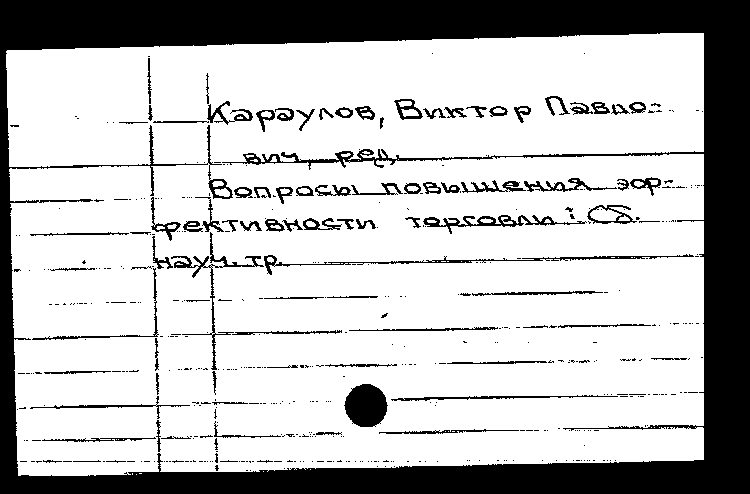 Караулов, Виктор Павло-
вич, ред.
Вопросы повышения эф-
фективности торговли : Сб.
науч. тр.